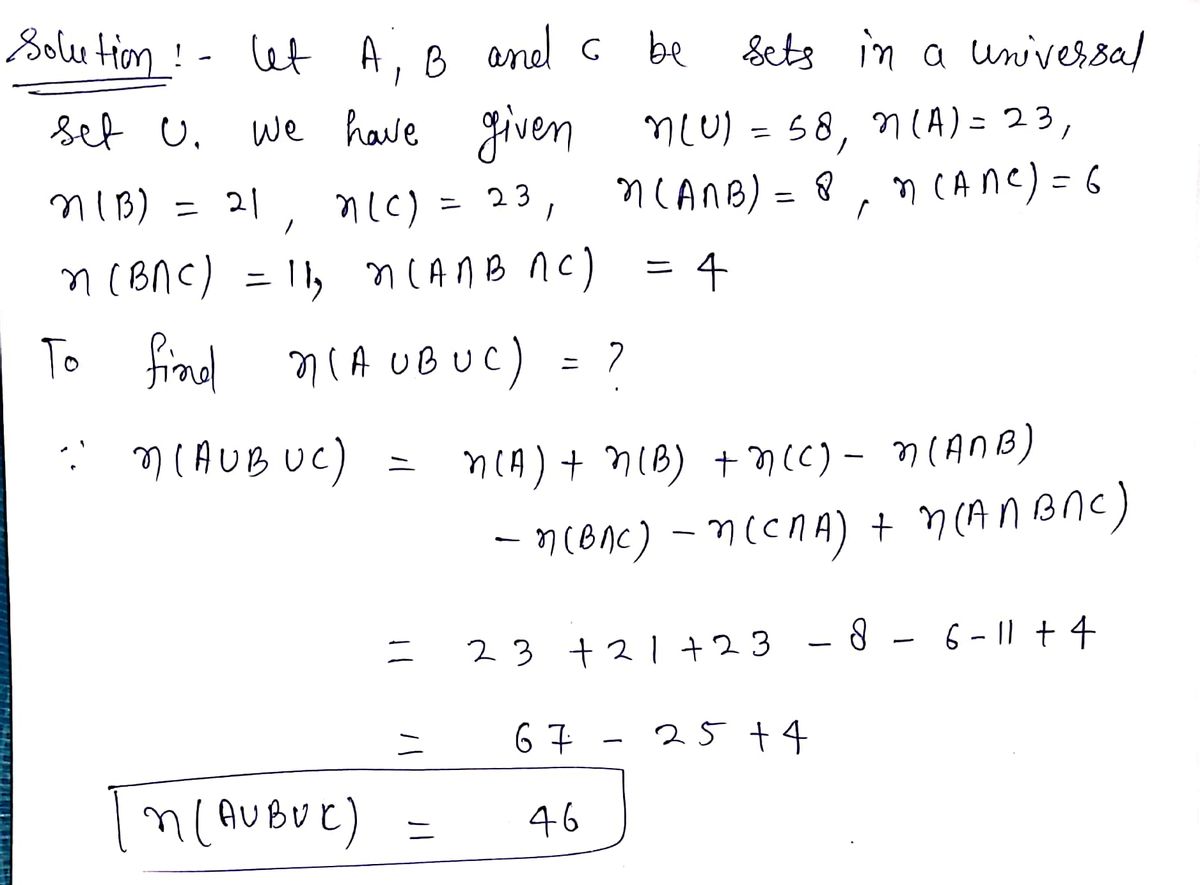 Solution :- let A, B and C be sets in a universal
set U. we have given n(U) = 58, n(A) = 23,
n(B) = 21, n(C) = 23, n(A∩B) = 8, n(A∩C) = 6
n(B∩C) = 11, n(A∩B∩C) = 4
To find n(A∪B∪C) = ?
∵ n(A∪B∪C) = n(A) + n(B) + n(C) - n(A∩B)
- n(B∩C) - n(C∩A) + n(A∩B∩C)
= 23 + 21 + 23 - 8 - 6 - 11 + 4
= 67 - 25 + 4
n(A∪B∪C) = 46